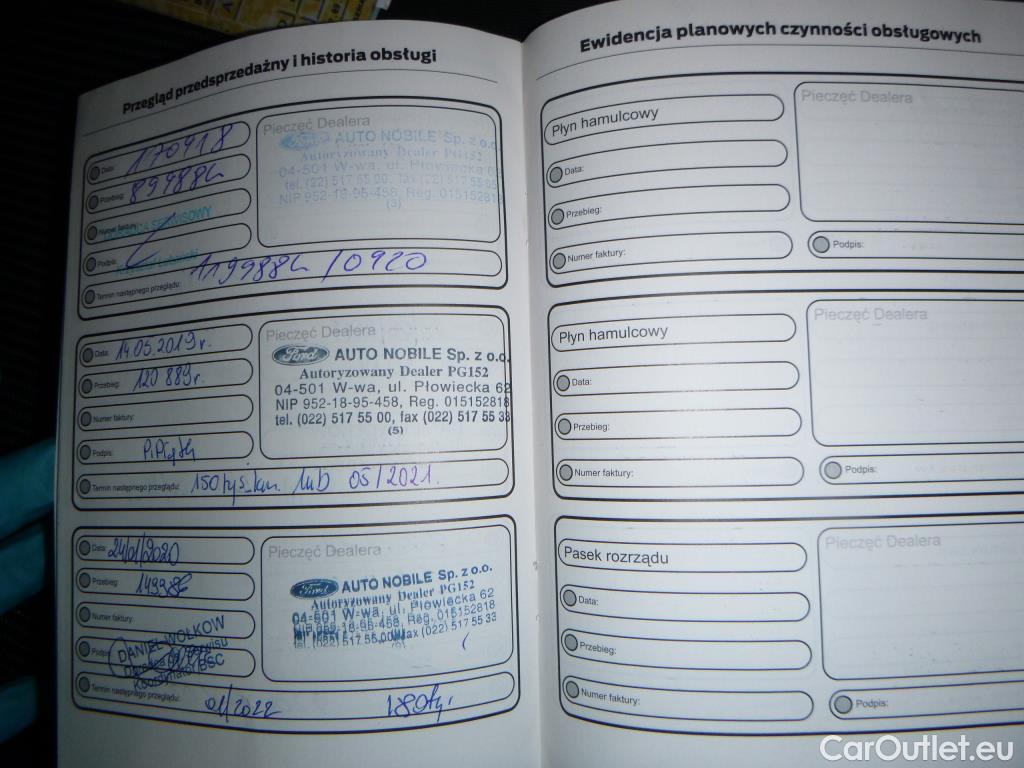 Przegląd przedsprzedażny i historia obsługi
Data: 170918
Przebieg: 89988km
Numer faktury:
Podpis:
Termin następnego przeglądu: 119988km /0920
Pieczęć Dealera
Ford AUTO NOBILE Sp. z o.o.
Autoryzowany Dealer PG152
04-501 W-wa, ul. Płowiecka 62
tel. (22) 517 55 00, fax (22) 517 55 05
NIP 952-18-95-458, Reg. 015152818
(3)
Data: 14.05.2019r.
Przebieg: 120 889
Numer faktury:
Podpis:
Termin następnego przeglądu: 150tyś km. lub 05/2021.
Pieczęć Dealera
Ford AUTO NOBILE Sp. z o.o.
Autoryzowany Dealer PG152
04-501 W-wa, ul. Płowiecka 62
NIP 952-18-95-458, Reg. 015152818
tel. (022) 517 55 00, fax (022) 517 55 33
(5)
Data: 24/01/2020
Przebieg: 149986
Numer faktury:
Podpis:
DANIEL WOŁKOW
Termin następnego przeglądu: 01/2022 180tyś
Pieczęć Dealera
Ford AUTO NOBILE Sp. z o.o.
Autoryzowany Dealer PG152
04-501 W-wa, ul. Płowiecka 62
NIP 952-18-95-458, Reg. 015152818
tel. (022) 517 55 00, fax (022) 517 55 33
Ewidencja planowych czynności obsługowych
Płyn hamulcowy
Data:
Przebieg:
Numer faktury:
Pieczęć Dealera
Podpis:
Płyn hamulcowy
Data:
Przebieg:
Numer faktury:
Pieczęć Dealera
Podpis:
Pasek rozrządu
Data:
Przebieg:
Numer faktury:
Pieczęć Dealera
Podpis:
CarOutlet.eu